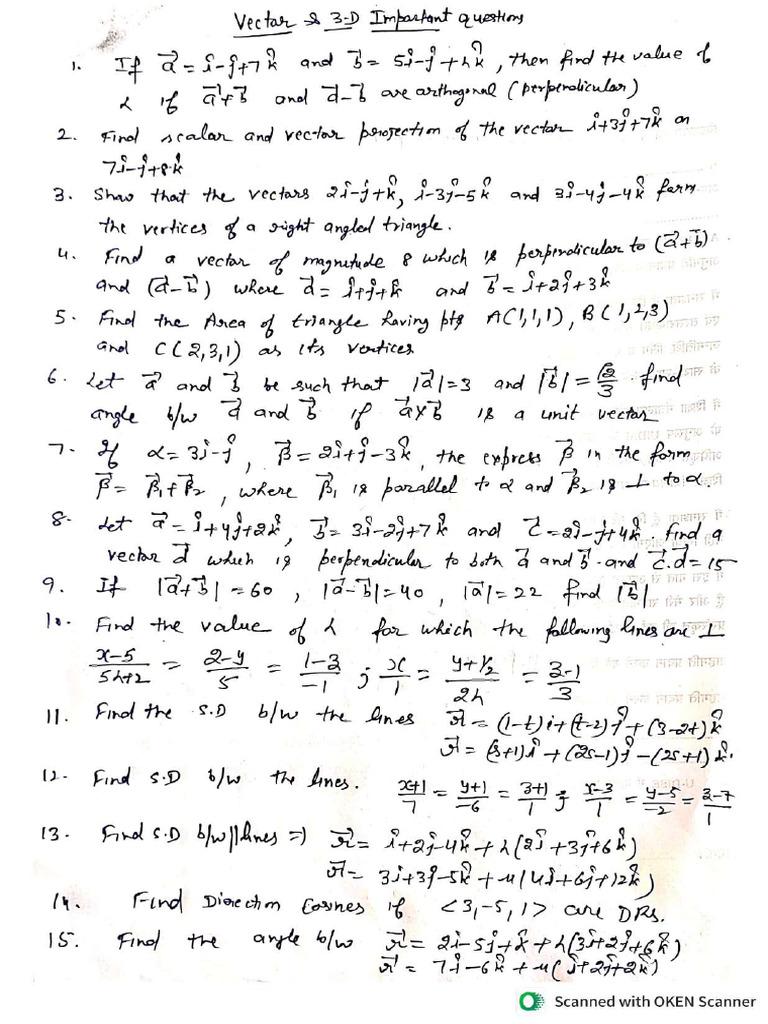 Vector & 3-D Important questions
1. If a⃗ = î-ĵ+7k̂ and b⃗ = 5î-ĵ+λk̂, then find the value of
λ if a⃗+b⃗ and a⃗-b⃗ are orthogonal (perpendicular)
2. Find scalar and vector projection of the vector î+3ĵ+7k̂ on
7î-ĵ+8k̂
3. Show that the vectors 2î-ĵ+k̂, î-3ĵ-5k̂ and 3î-4ĵ-4k̂ form
the vertices of a right angled triangle.
4. Find a vector of magnitude 8 which is perpendicular to (a⃗+b⃗)
and (a⃗-b⃗) where a⃗ = î+ĵ+k̂ and b⃗ = î+2ĵ+3k̂
5. Find the Area of triangle having pts A(1,1,1), B(1,2,3)
and C(2,3,1) as its vertices
6. Let a⃗ and b⃗ be such that |a⃗|=3 and |b⃗|=√2/3 find
angle b/w a⃗ and b⃗ if a⃗×b⃗ is a unit vector
7. If α = 3î-ĵ, β⃗ = 2î+ĵ-3k̂, the express β⃗ in the form
β⃗ = β⃗₁+β⃗₂, where β⃗₁ is parallel to α and β⃗₂ is ⊥ to α.
8. Let a⃗ = î+4ĵ+2k̂, b⃗ = 3î-2ĵ+7k̂ and c⃗ = 2î-ĵ+4k̂. find a
vector d⃗ which is perpendicular to both a⃗ and b⃗ and c⃗.d⃗=15
9. If |a⃗+b⃗| = 60, |a⃗-b⃗| = 40, |a⃗| = 22 find |b⃗|
10. Find the value of λ for which the following lines are ⊥
(x-5)/(5λ+2) = (2-y)/5 = (1-z)/-1 ; x/1 = (y+1/2)/2λ = (z-1)/3
11. Find the S.D b/w the lines r⃗ = (1-t)î+(t-2)ĵ+(3-2t)k̂
r⃗ = (s+1)î+(2s-1)ĵ-(2s+1)k̂.
12. Find S.D b/w the lines. (x+1)/7 = (y+1)/-6 = (z+1)/1 ; (x-3)/1 = (y-5)/-2 = (z-7)/1
13. Find S.D b/w || lines ⇒ r⃗ = î+2ĵ-4k̂+λ(2î+3ĵ+6k̂)
r⃗ = 3î+3ĵ-5k̂+μ(4î+6ĵ+12k̂)
14. Find Direction Cosines if <3,-5,1> are DRs.
15. Find the angle b/w r⃗ = 2î-5ĵ+k̂+λ(3î+2ĵ+6k̂)
r⃗ = 7î-6k̂+μ(î+2ĵ+2k̂)
Scanned with OKEN Scanner